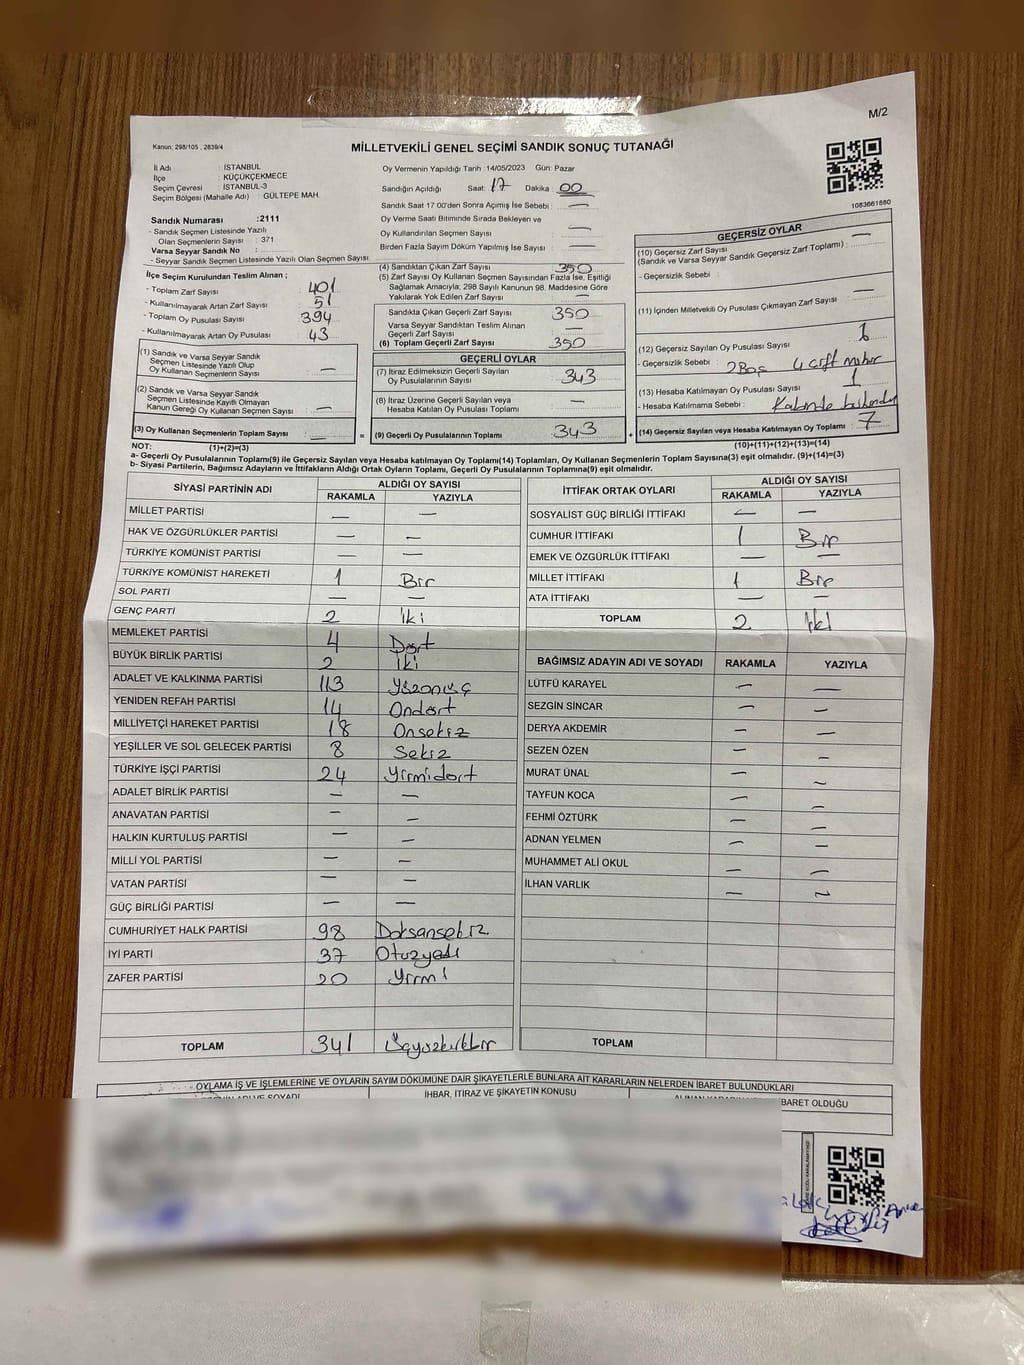 M/2
Kanun: 298/105 , 2839/4
MİLLETVEKİLİ GENEL SEÇİMİ SANDIK SONUÇ TUTANAĞI
1083661880
İl Adı : İSTANBUL
İlçe : KÜÇÜKÇEKMECE
Seçim Çevresi : İSTANBUL-3
Seçim Bölgesi (Mahalle Adı) : GÜLTEPE MAH.
Sandık Numarası :2111
- Sandık Seçmen Listesinde Yazılı
Olan Seçmenlerin Sayısı : 371
Varsa Seyyar Sandık No :
- Seyyar Sandık Seçmen Listesinde Yazılı Olan Seçmen Sayısı
İlçe Seçim Kurulundan Teslim Alınan ;
- Toplam Zarf Sayısı : 401
- Kullanılmayarak Artan Zarf Sayısı : 51
- Toplam Oy Pusulası Sayısı : 394
- Kullanılmayarak Artan Oy Pusulası : 43
(1) Sandık ve Varsa Seyyar Sandık
Seçmen Listesinde Yazılı Olup
Oy Kullanan Seçmenlerin Sayısı : —
(2) Sandık ve Varsa Seyyar Sandık
Seçmen Listesinde Kayıtlı Olmayan
Kanun Gereği Oy Kullanan Seçmen Sayısı : —
(3) Oy Kullanan Seçmenlerin Toplam Sayısı : —
Oy Vermenin Yapıldığı Tarih :14/05/2023 Gün: Pazar
Sandığın Açıldığı Saat: 17 Dakika : 00
Sandık Saat 17:00'den Sonra Açılmış İse Sebebi : —
Oy Verme Saati Bitiminde Sırada Bekleyen ve
Oy Kullandırılan Seçmen Sayısı : —
Birden Fazla Sayım Döküm Yapılmış İse Sayısı : —
(4) Sandıktan Çıkan Zarf Sayısı : 350
(5) Zarf Sayısı Oy Kullanan Seçmen Sayısından Fazla İse, Eşitliği
Sağlamak Amacıyla; 298 Sayılı Kanunun 98. Maddesine Göre
Yakılarak Yok Edilen Zarf Sayısı : —
Sandıkta Çıkan Geçerli Zarf Sayısı : 350
Varsa Seyyar Sandıktan Teslim Alınan
Geçerli Zarf Sayısı : —
(6) Toplam Geçerli Zarf Sayısı : 350
GEÇERLİ OYLAR
(7) İtiraz Edilmeksizin Geçerli Sayılan
Oy Pusulalarının Sayısı : 343
(8) İtiraz Üzerine Geçerli Sayılan veya
Hesaba Katılan Oy Pusulası Toplamı : —
= (9) Geçerli Oy Pusulalarının Toplamı : 343
GEÇERSİZ OYLAR
(10) Geçersiz Zarf Sayısı —
(Sandık ve Varsa Seyyar Sandık Geçersiz Zarf Toplamı) :
- Geçersizlik Sebebi :
(11) İçinden Milletvekili Oy Pusulası Çıkmayan Zarf Sayısı : —
(12) Geçersiz Sayılan Oy Pusulası Sayısı : 6
- Geçersizlik Sebebi : 2 Boş 4 çift mühür
(13) Hesaba Katılmayan Oy Pusulası Sayısı : 1
- Hesaba Katılmama Sebebi :
+ (14) Geçersiz Sayılan veya Hesaba Katılmayan Oy Toplamı : 7
NOT: (1)+(2)=(3) (10)+(11)+(12)+(13)=(14)
a- Geçerli Oy Pusulasının Toplamı(9) ile Geçersiz Sayılan veya Hesaba katılmayan Oy Toplamı(14) Toplamları, Oy Kullanan Seçmenlerin Toplam Sayısına(3) eşit olmalıdır. (9)+(14)=(3)
b- Siyasi Partilerin, Bağımsız Adayların ve İttifakların Aldığı Ortak Oyların Toplamı, Geçerli Oy Pusulasının Toplamına(9) eşit olmalıdır.
SİYASİ PARTİNİN ADI ALDIĞI OY SAYISI
RAKAMLA YAZIYLA
MİLLET PARTİSİ — —
HAK VE ÖZGÜRLÜKLER PARTİSİ — —
TÜRKİYE KOMÜNİST PARTİSİ — —
TÜRKİYE KOMÜNİST HAREKETİ 1 Bir
SOL PARTİ — —
GENÇ PARTİ 2 iki
MEMLEKET PARTİSİ 4 Dört
BÜYÜK BİRLİK PARTİSİ 2 iki
ADALET VE KALKINMA PARTİSİ 113 Yüzonüç
YENİDEN REFAH PARTİSİ 14 Ondört
MİLLİYETÇİ HAREKET PARTİSİ 18 Onsekiz
YEŞİLLER VE SOL GELECEK PARTİSİ 8 Sekiz
TÜRKİYE İŞÇİ PARTİSİ 24 Yirmidört
ADALET BİRLİK PARTİSİ — —
ANAVATAN PARTİSİ — —
HALKIN KURTULUŞ PARTİSİ — —
MİLLİ YOL PARTİSİ — —
VATAN PARTİSİ — —
GÜÇ BİRLİĞİ PARTİSİ — —
CUMHURİYET HALK PARTİSİ 98 Doksansekiz
İYİ PARTİ 37 Otuzyedi
ZAFER PARTİSİ 20 Yirmi
TOPLAM 341 Üçyüzkırkbir
İTTİFAK ORTAK OYLARI ALDIĞI OY SAYISI
RAKAMLA YAZIYLA
SOSYALİST GÜÇ BİRLİĞİ İTTİFAKI — —
CUMHUR İTTİFAKI 1 Bir
EMEK VE ÖZGÜRLÜK İTTİFAKI — —
MİLLET İTTİFAKI 1 Bir
ATA İTTİFAKI — —
TOPLAM 2 iki
BAĞIMSIZ ADAYIN ADI VE SOYADI RAKAMLA YAZIYLA
LÜTFÜ KARAYEL — —
SEZGİN SİNCAR — —
DERYA AKDEMİR — —
SEZEN ÖZEN — —
MURAT ÜNAL — —
TAYFUN KOCA — —
FEHMİ ÖZTÜRK — —
ADNAN YELMEN — —
MUHAMMET ALİ OKUL — —
İLHAN VARLIK — —
TOPLAM
OYLAMA İŞ VE İŞLEMLERİNE VE OYLARIN SAYIM DÖKÜMÜNE DAİR ŞİKAYETLERLE BUNLARA AİT KARARLARIN NELERDEN İBARET BULUNDUKLARI
İHBAR, İTİRAZ VE ŞİKAYETİN KONUSU
BARET OLDUĞU